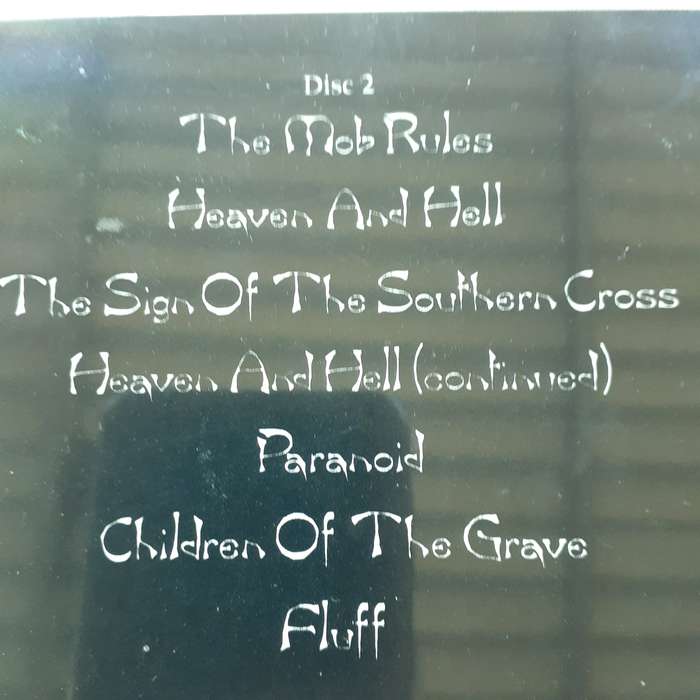 Disc 2
The Mob Rules
Heaven And Hell
The Sign Of The Southern Cross
Heaven And Hell (continued)
Paranoid
Children Of The Grave
Fluff